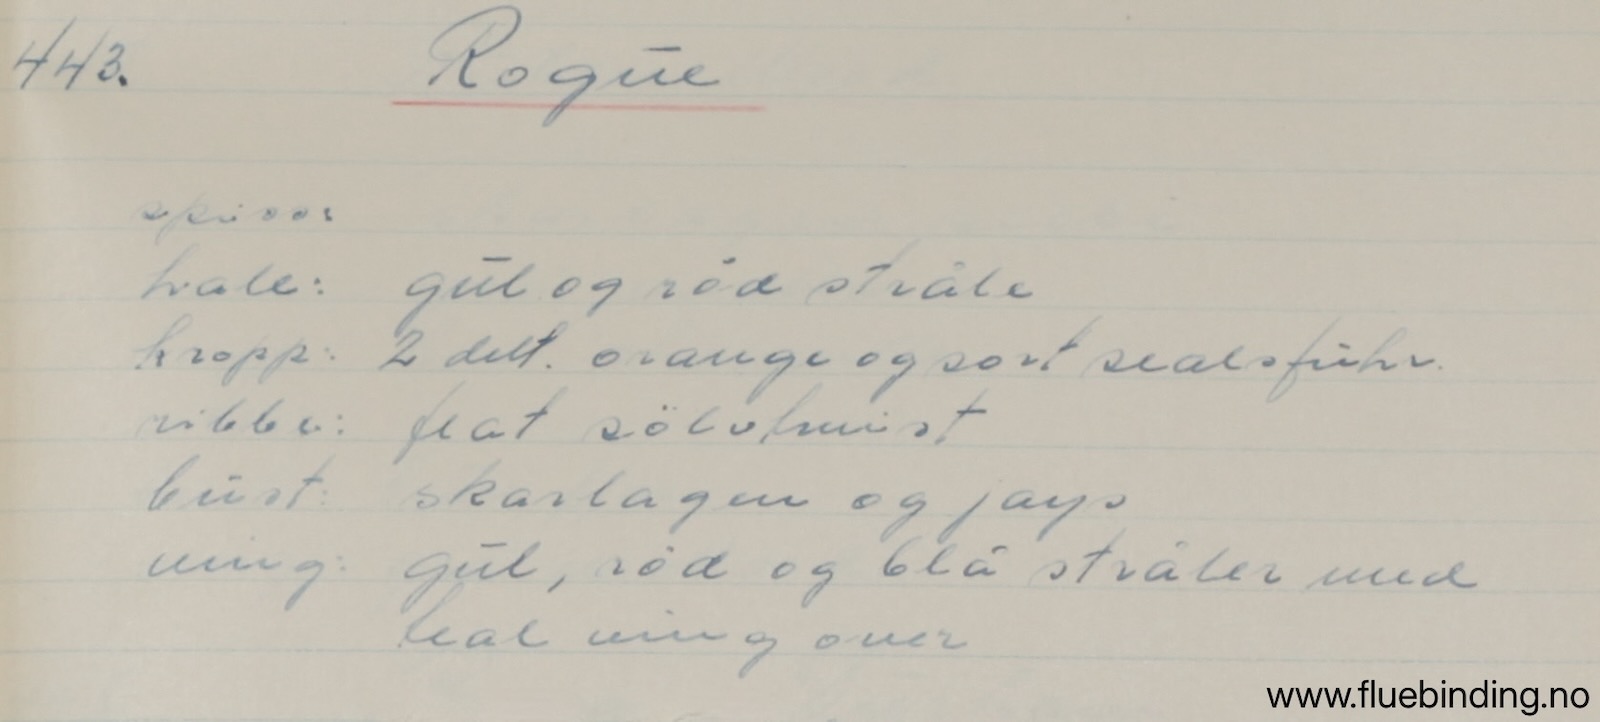 443. Rogue
spiss:
hale: gul og rød stråle
kropp: 2 delt. orange og sort sealsfuhr.
ribbe: flat sölvtwist
bust: skarlagen og jays
ving: gul, rød og blå stråler med
teal ving over
www.fluebinding.no